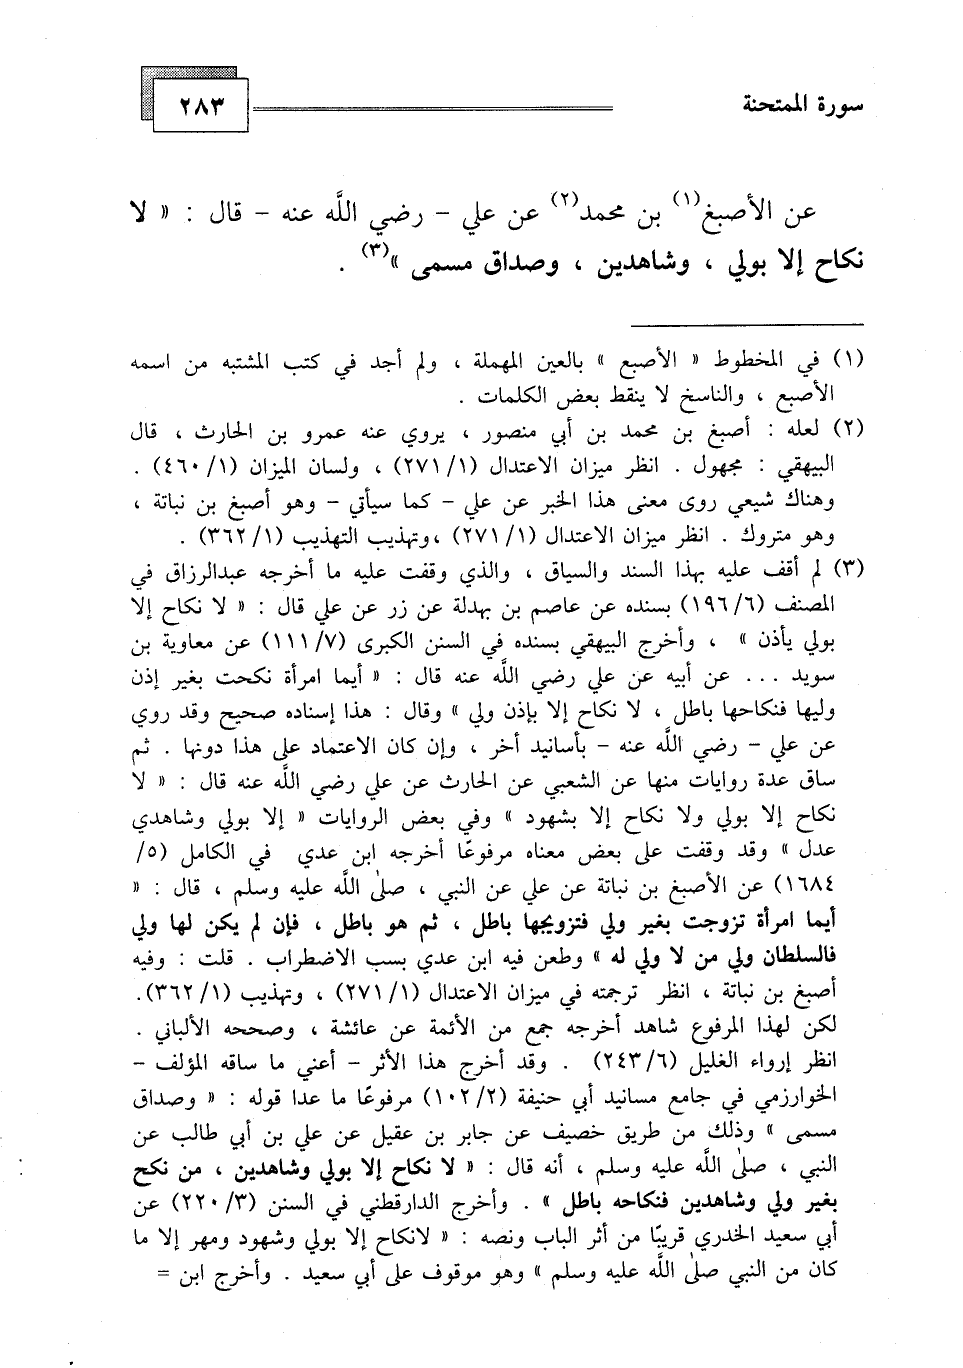 سورة الممتحنة
٢٨٣
عن الأصبغ(١) بن محمد(٢) عن علي – رضي الله عنه – قال : « لا
نكاح إلا بولي ، وشاهدين ، وصداق مسمى »(٣) .
(١) في المخطوط « الأصبع » بالعين المهملة ، ولم أجد في كتب المشتبه من اسمه
الأصبع ، والناسخ لا ينقط بعض الكلمات .
(٢) لعله : أصبغ بن محمد بن أبي منصور ، يروي عنه عمرو بن الحارث ، قال
البيهقي : مجهول . انظر ميزان الاعتدال (٢٧١/١) ، ولسان الميزان (٤٦٠/١) .
وهناك شيعي روى معنى هذا الخبر عن علي – كما سيأتي – وهو أصبغ بن نباتة ،
وهو متروك . انظر ميزان الاعتدال (٢٧١/١) ،وتهذيب التهذيب (٣٦٢/١) .
(٣) لم أقف عليه بهذا السند والسياق ، والذي وقفت عليه ما أخرجه عبدالرزاق في
المصنف (١٩٦/٦) بسنده عن عاصم بن بهدلة عن زر عن علي قال : « لا نكاح إلا
بولي يأذن » ، وأخرج البيهقي بسنده في السنن الكبرى (١١١/٧) عن معاوية بن
سويد ... عن أبيه عن علي رضي الله عنه قال : « أيما امرأة نكحت بغير إذن
وليها فنكاحها باطل ، لا نكاح إلا بإذن ولي » وقال : هذا إسناده صحيح وقد روي
عن علي – رضي الله عنه – بأسانيد أخر ، وإن كان الاعتماد على هذا دونها . ثم
ساق عدة روايات منها عن الشعبي عن الحارث عن علي رضي الله عنه قال : « لا
نكاح إلا بولي ولا نكاح إلا بشهود » وفي بعض الروايات « إلا بولي وشاهدي
عدل » وقد وقفت على بعض معناه مرفوعًا أخرجه ابن عدي في الكامل (٥/
١٦٨٤) عن الأصبغ بن نباتة عن علي عن النبي ، صلى الله عليه وسلم ، قال : «
أيما امرأة تزوجت بغير ولي فتزويجها باطل ، ثم هو باطل ، فإن لم يكن لها ولي
فالسلطان ولي من لا ولي له » وطعن فيه ابن عدي بسب الاضطراب . قلت : وفيه
أصبغ بن نباتة ، انظر ترجمته في ميزان الاعتدال (٢٧١/١) ، وتهذيب (٣٦٢/١).
لكن لهذا المرفوع شاهد أخرجه جمع من الأئمة عن عائشة ، وصححه الألباني .
انظر إرواء الغليل (٢٤٣/٦) . وقد أخرج هذا الأثر – أعني ما ساقه المؤلف –
الخوارزمي في جامع مسانيد أبي حنيفة (١٠٢/٢) مرفوعًا ما عدا قوله : « وصداق
مسمى » وذلك من طريق خصيف عن جابر بن عقيل عن علي بن أبي طالب عن
النبي ، صلى الله عليه وسلم ، أنه قال : « لا نكاح إلا بولي وشاهدين ، من نكح
بغير ولي وشاهدين فنكاحه باطل » . وأخرج الدارقطني في السنن (٢٢٠/٣) عن
أبي سعيد الخدري قريبًا من أثر الباب ونصه : « لانكاح إلا بولي وشهود ومهر إلا ما
كان من النبي صلى الله عليه وسلم » وهو موقوف على أبي سعيد . وأخرج ابن =